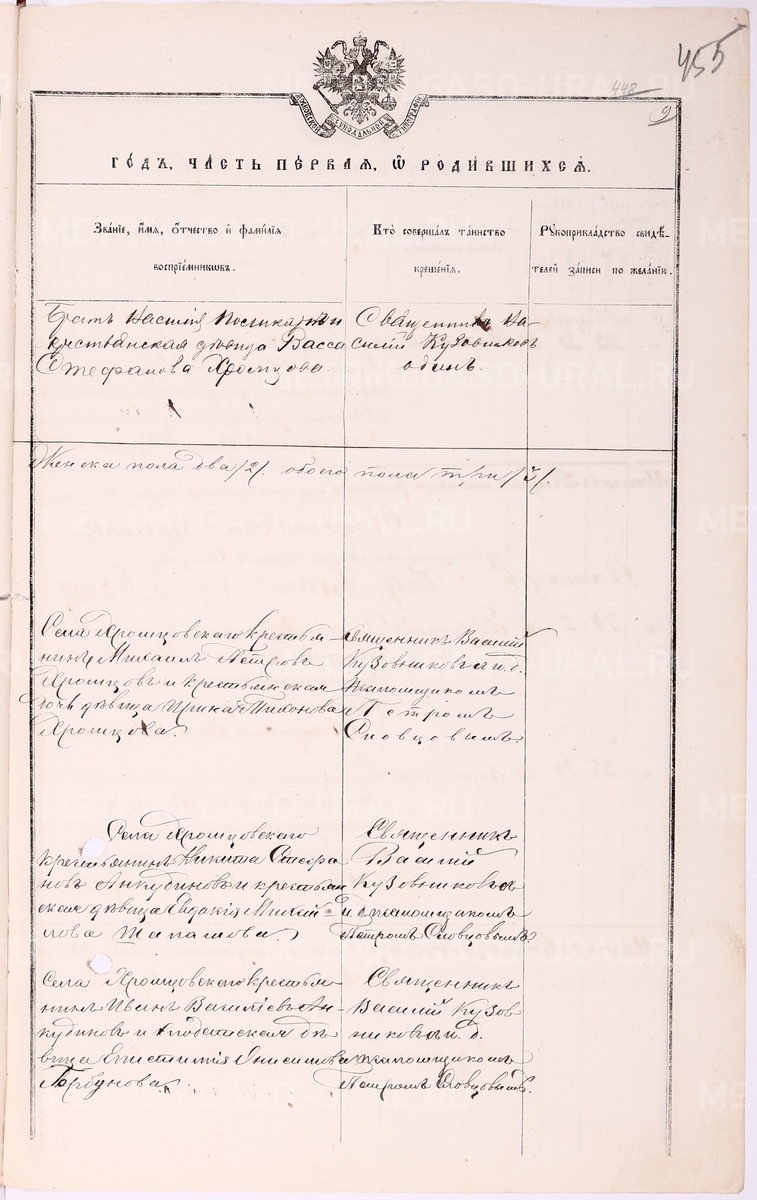 455
448
9
МОСКОВСКОЙ СУНОДАЛЬНОЙ ТИПОГРАФІИ
ГО́ДЪ, ЧА́СТЬ ПЕ́РВАЯ, Ѡ҆ РОДИ́ВШИХСѦ.
Зва́нїе, и҆́мѧ, ѻ҆́тчество и҆ фами́лїѧ
воспрїе́мникѡвъ.
Кто̀ соверша́лъ та́инство
креще́нїѧ.
Рꙋкоприкла́дство свидѣ́-
телей за́писи по жела́нїю.
Братъ Василія и
крестьянская дѣвица Васса
Стефанова Хромцова.
Священникъ Ва-
силій Кузовниковъ
одинъ.
Женска пола два /2/. обоего пола три /3/.
Села Хромцовскаго крестья-
нинъ Михаилъ Петровъ
Хромцовъ и крестьянская
дочь дѣвица Ирина Тихонова
Хромцова.
Священникъ Василій
Кузовниковъ и. д.
псаломщикомъ
Петромъ
Словцовымъ.
Села Хромцовскаго
крестьянинъ Никита Стефа
новъ Анкудиновъ и крестьян
ская дѣвица Евдакія Михай-
лова Шапашова.
Священникъ
Василій
Кузовниковъ съ
и. д. псаломщикомъ
Петромъ Словцовымъ.
Села Хромцовскаго крестья-
нинъ Иванъ Васильевъ Ан-
кудиновъ и дѣ
вица Епистимія Онисимова
Горбунова.
Священникъ
Василій Кузов
никовъ и. д.
псаломщикомъ
Петромъ Словцовымъ.